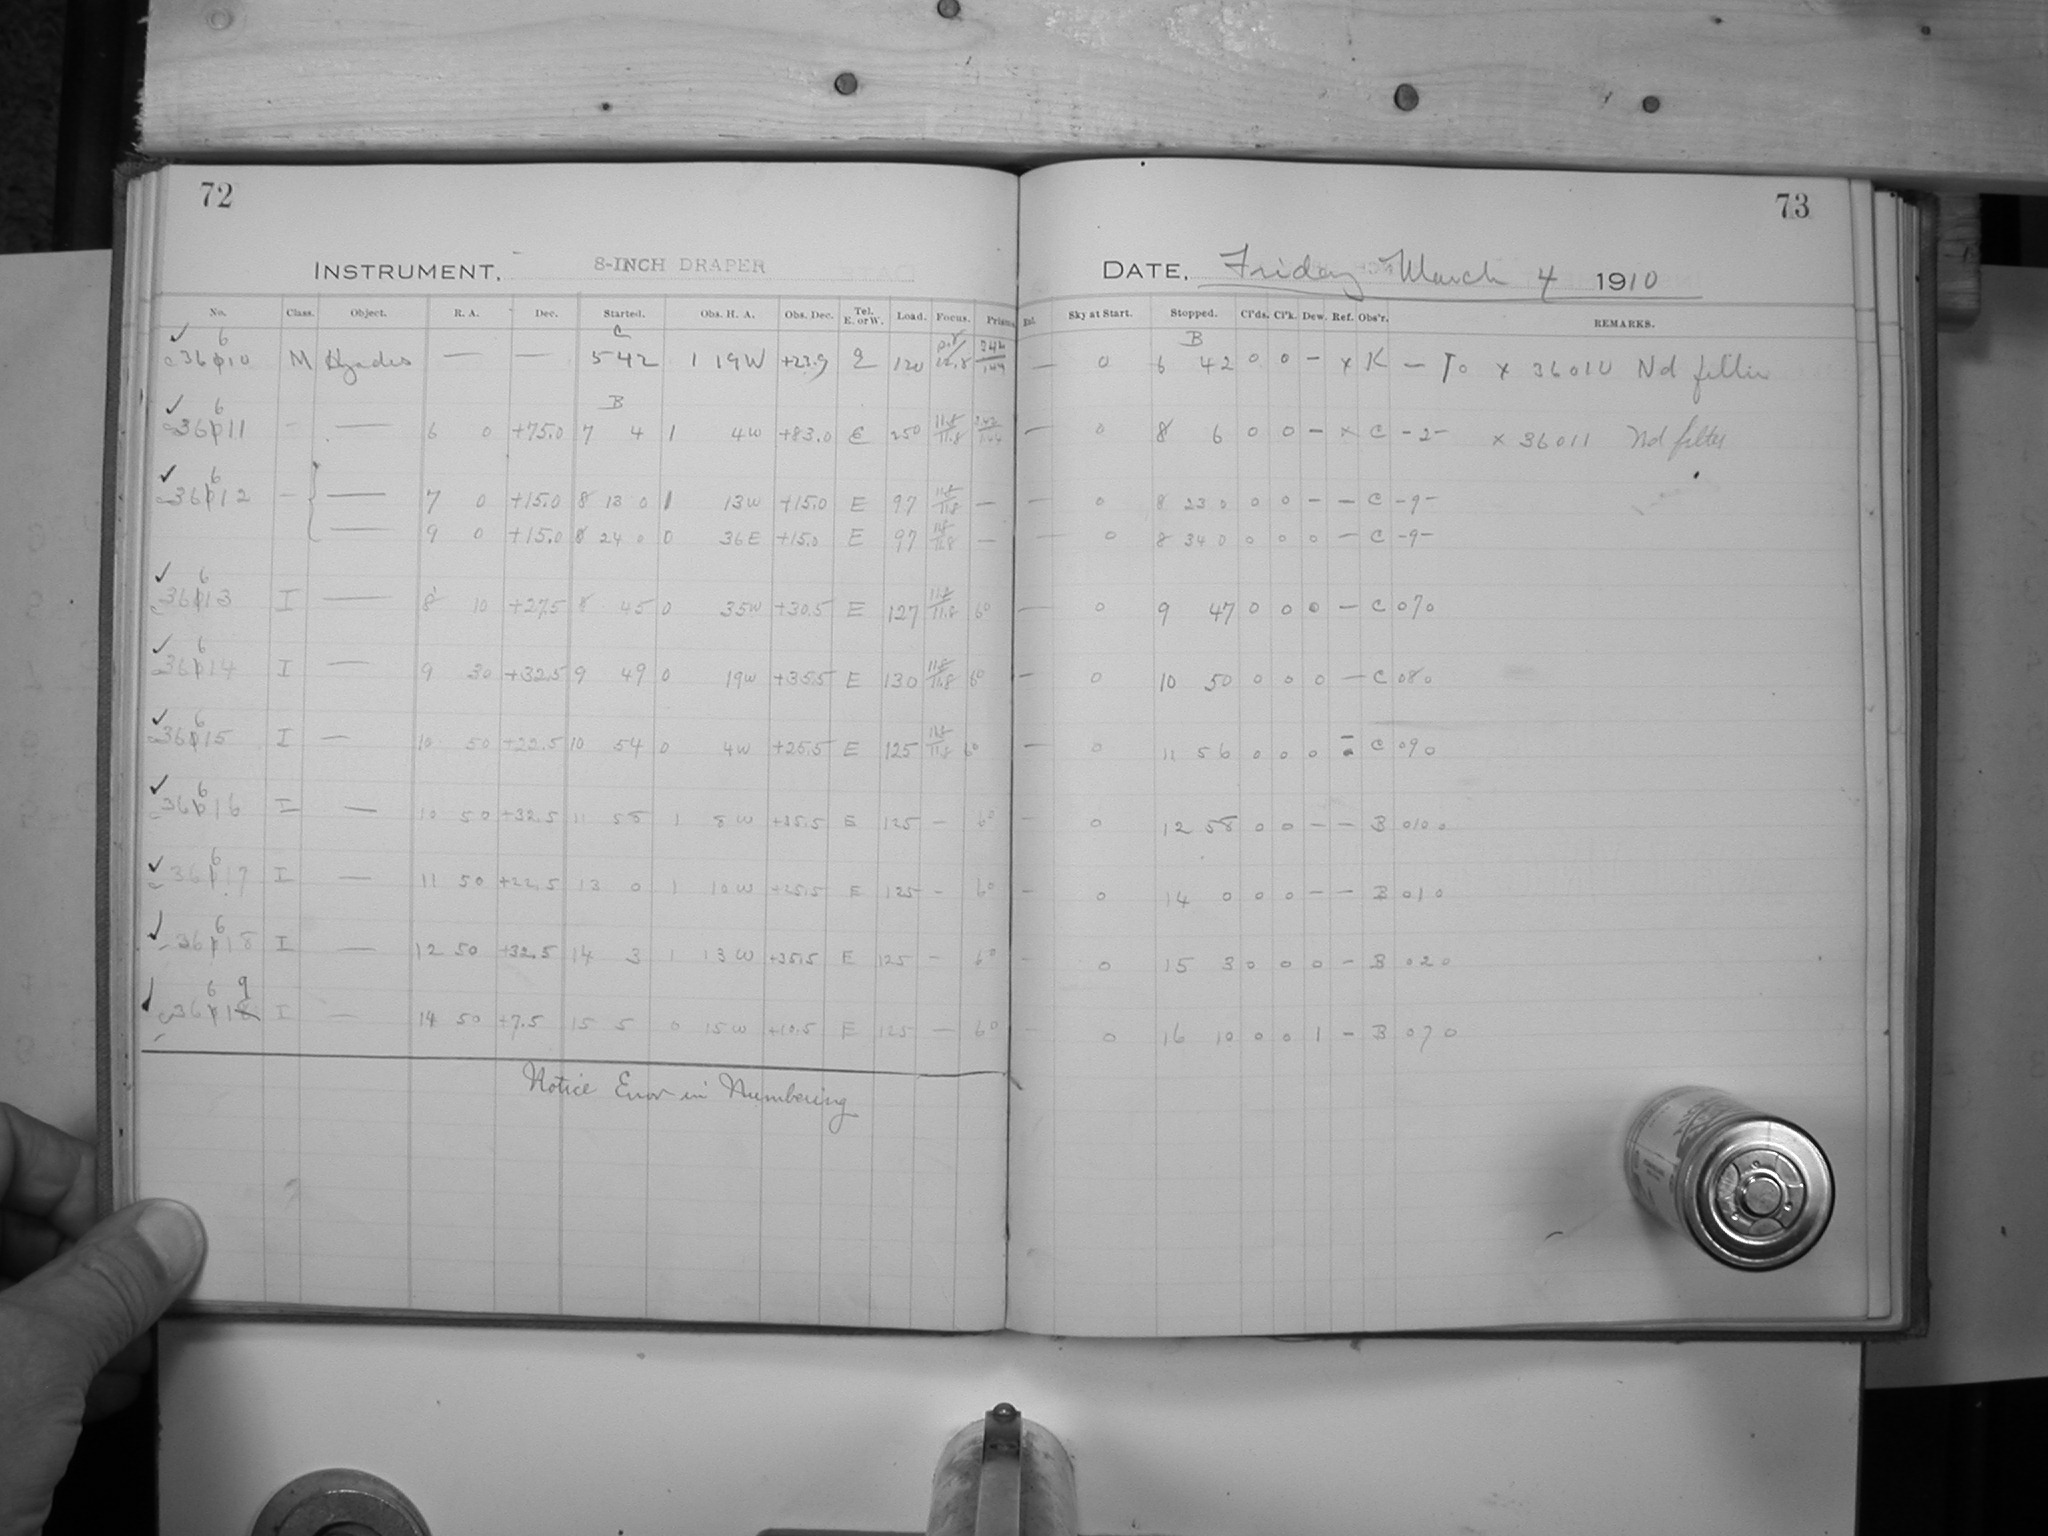 72
INSTRUMENT. 8-INCH DRAPER
No. Class. Object. R. A. Dec. Started. Obs. H. A. Obs. Dec. Tel. E. or W. Load. Focus. Prism.
6 C
c36010 M Hyades — — 5 42 1 19W +23.9 E 120
6 B
c36011 - — 6 0 +75.0 7 4 1 4W +83.0 E 250 11.8/11.8
6
c36012 - — 7 0 +15.0 8 13 0 1 13W +15.0 E 97 11.8/11.8 —
— 9 0 +15.0 8 24 0 0 36E +15.0 E 97 11.8/11.8 —
6
c36013 I — 8 10 +27.5 8 45 0 35W +30.5 E 127 11.8/11.8 60
6
c36014 I — 9 30 +32.5 9 49 0 19W +35.5 E 130 11.8/11.8 60
6
c36015 I — 10 50 +22.5 10 54 0 4W +25.5 E 125 11.8/11.8 60
6
c36016 I — 10 50 +32.5 11 58 1 8W +35.5 E 125 - 60
6
c36017 I — 11 50 +22.5 13 0 1 10W +25.5 E 125 - 60
6
c36018 I — 12 50 +32.5 14 3 1 13W +35.5 E 125 - 60
6 9
c36018 I — 14 50 +7.5 15 5 0 15W +10.5 E 125 — 60
Notice Error in Numbering
73
DATE. Friday March 4 1910
Ext. Sky at Start. Stopped. Cl'ds. Cl'k. Dew. Ref. Obs'r. REMARKS.
B
— 0 6 42 0 0 - x K — To x 36010 Nd filter
— 0 8 6 0 0 - x C -2- x 36011 Nd filter
— 0 8 23 0 0 0 - — C -9-
— 0 8 34 0 0 0 0 — C -9-
— 0 9 47 0 0 0 — C 070
— 0 10 50 0 0 0 — C 080
— 0 11 56 0 0 0 C 090
— 0 12 58 0 0 - - B 0100
— 0 14 0 0 0 - - B 010
— 0 15 3 0 0 0 - B 020
— 0 16 10 0 0 1 - B 070